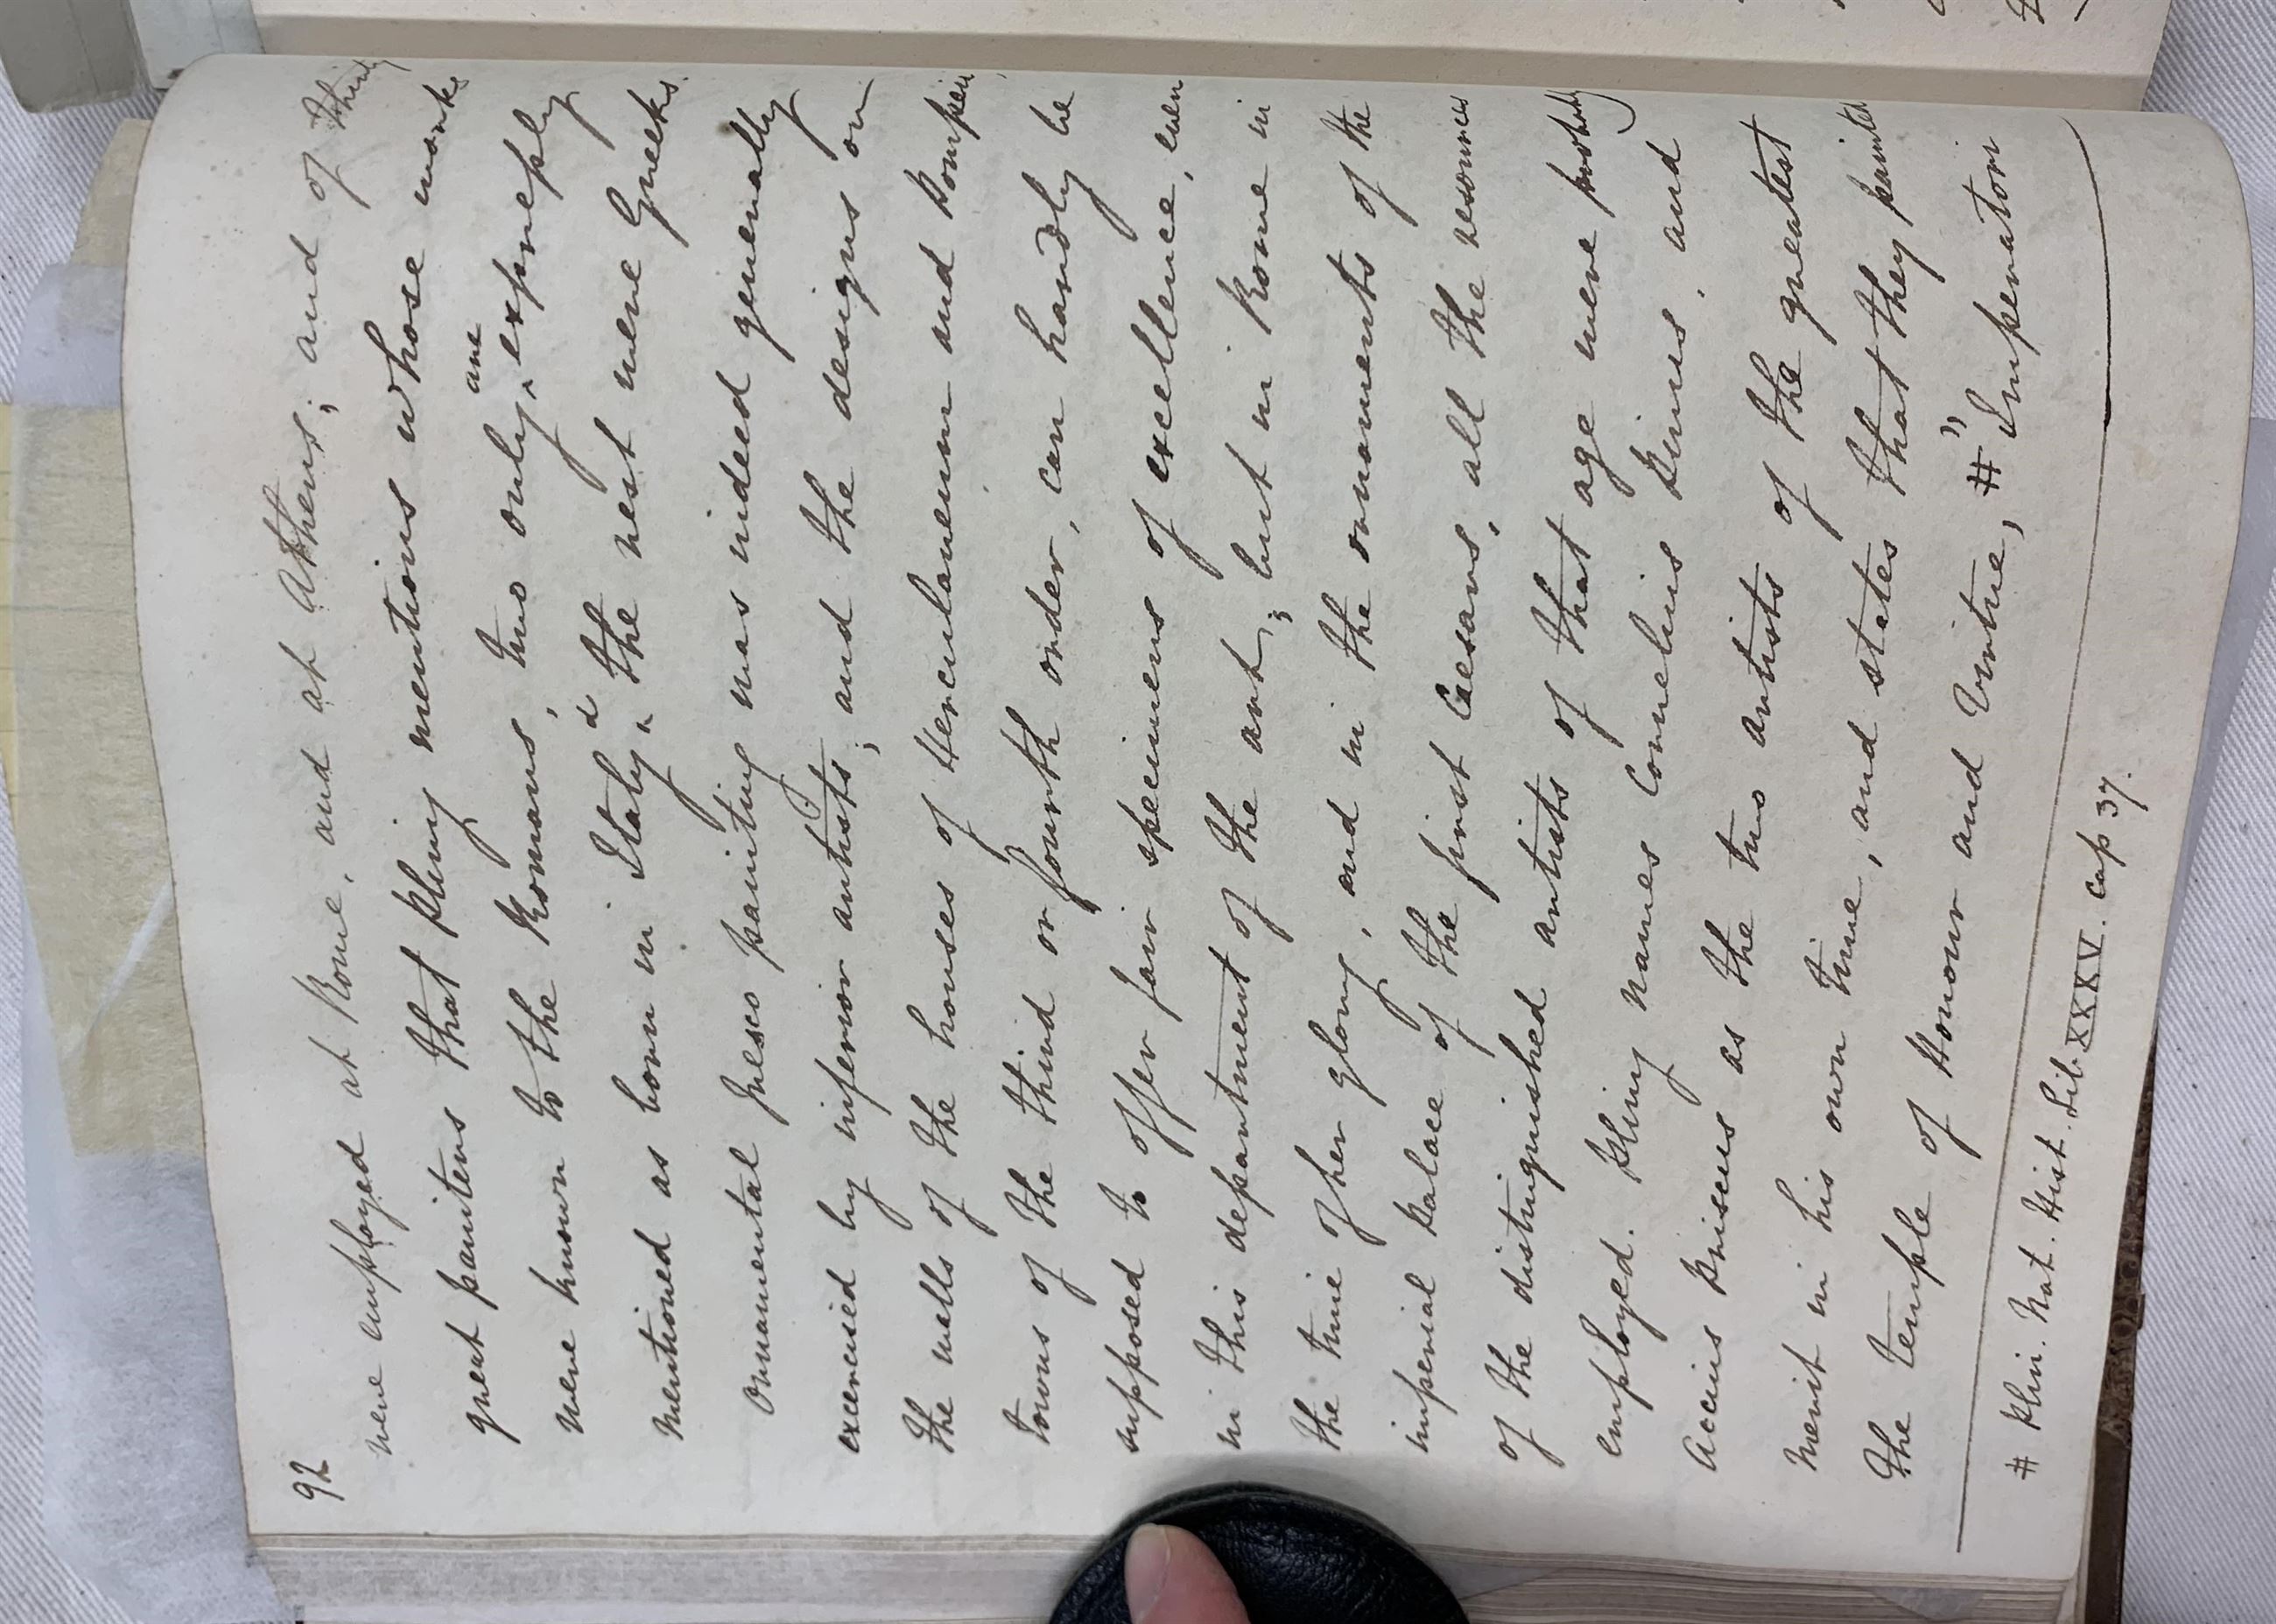 92
were employed at Rome, and at Athens; and of thirty
great painters that Pliny mentions whose works
were known to the Romans, two only, are expressly
mentioned as born in Italy, & the rest were Greeks.
Ornamental fresco painting was indeed generally
exercised by inferior artists; and the designs on
the walls of the houses of Herculaneum and Pompeii,
towns of the third or fourth order, can hardly be
supposed to offer fair specimens of excellence, even
in this department of the art; but in Rome in
the time of her glory, and in the ornaments of the
imperial Palace of the first Caesars, all the resources
of the distinguished artists of that age were probably
employed. Pliny names Cornelius Pinus, and
Accius Priscus as the two artists of the greatest
merit in his own time, and states that they painted
the temple of Honour and Virtue, # " Imperatori
# Plin. Nat. Hist. Lib. XXXV. cap 37.